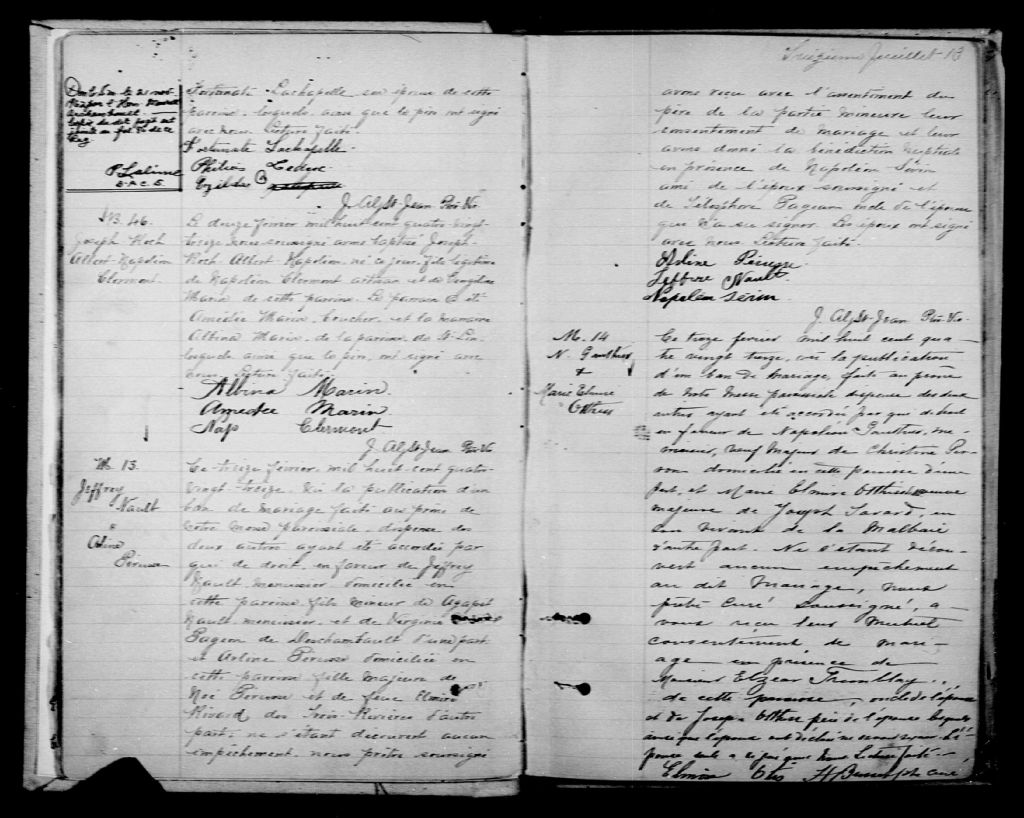 Treizième feuillet 13
Fortunate Lachapelle son épouse de cette
paroisse, lesquels, ainsi que le père ont signé
avec nous. Lecture faite.
Fortunate Lachapelle
Philias Leduc
P. Lalime
J. Alf. St-Jean Ptre Vic.
B. 46.
Joseph Roch
Albert Napoléon
Clermont.
Le douze février mil huit cent quatre-vingt-
treize nous soussigné avons baptisé Joseph-
Roch Albert Napoléon, né ce jour, fils légitime
de Napoléon Clermont artisan et de
Marin de cette paroisse. Le parrain a été
Amédée Marin, boucher, et la marraine
Albina Marin, de la paroisse de St-Lin
lesquels ainsi que le père, ont signé avec
nous. Lecture faite.
Albina Marin
Amedée Marin
Nap Clermont
J. Alf. St-Jean Ptre Vic.
M. 13.
Jeffrey
Nault
&
Arline
Perusse
Le treize février, mil huit cent quatre-
vingt-treize. Vu la publication d'un
ban de mariage faite au prône de
notre messe paroissiale, dispense des
deux autres ayant été accordée par
qui de droit, en faveur de Jeffrey
Nault, menuisier, domicilié en
cette paroisse, fils mineur de Agapit
Nault, menuisier, et de Virginie
Pageon de Deschambault d'une part
et Arline Pérusse domiciliée en
cette paroisse fille majeure de
Noé Pérusse et de feue Elmire
Rivard des Trois-Rivières d'autre
part; ne s'étant découvert aucun
empêchement, nous prêtre soussigné
avons reçu avec l'assentiment du
père de la partie mineure leur
consentement de mariage et leur
avons donné la bénédiction nuptiale
en présence de Napoléon Serin
ami de l'époux soussigné et
de Télesphore Pageau oncle de l'épouse
qui n'a su signer. Les époux ont signé
avec nous. Lecture faite.
Orline Perusse
Jeffrey Nault
Napoléon Serin
J. Alf. St-Jean Ptre Vic.
M. 14
N. Gauthier
&
Marie Elmire
Otthis
Le treize février mil huit cent qua-
tre vingt treize, vu la publication
d'un ban de mariage, faite au prône
de notre messe paroissiale dispense des deux
autres ayant été accordée par qui de droit
en faveur de Napoléon Gauthier, me-
nuisier, veuf majeur de Christine
domicilié en cette paroisse d'une
part, et Marie Elmire Otthis veuve
majeure de Joseph Savard, en
son vivant de la Malbaie
d'autre part. Ne s'étant décou-
vert aucun empêchement
au dit mariage, nous
prêtre curé soussigné, a-
vons reçu leur mutuel
consentement de mari-
age en présence de
Monsieur Elzéar Tremblay
de cette paroisse, oncle de l'épouse
et de Joseph Otthis père de l'épouse lesquels
ainsi que l'époux ont déclaré ne savoir signer. L'é-
pouse seule a signé avec nous. Lecture faite.
Elmire Otis